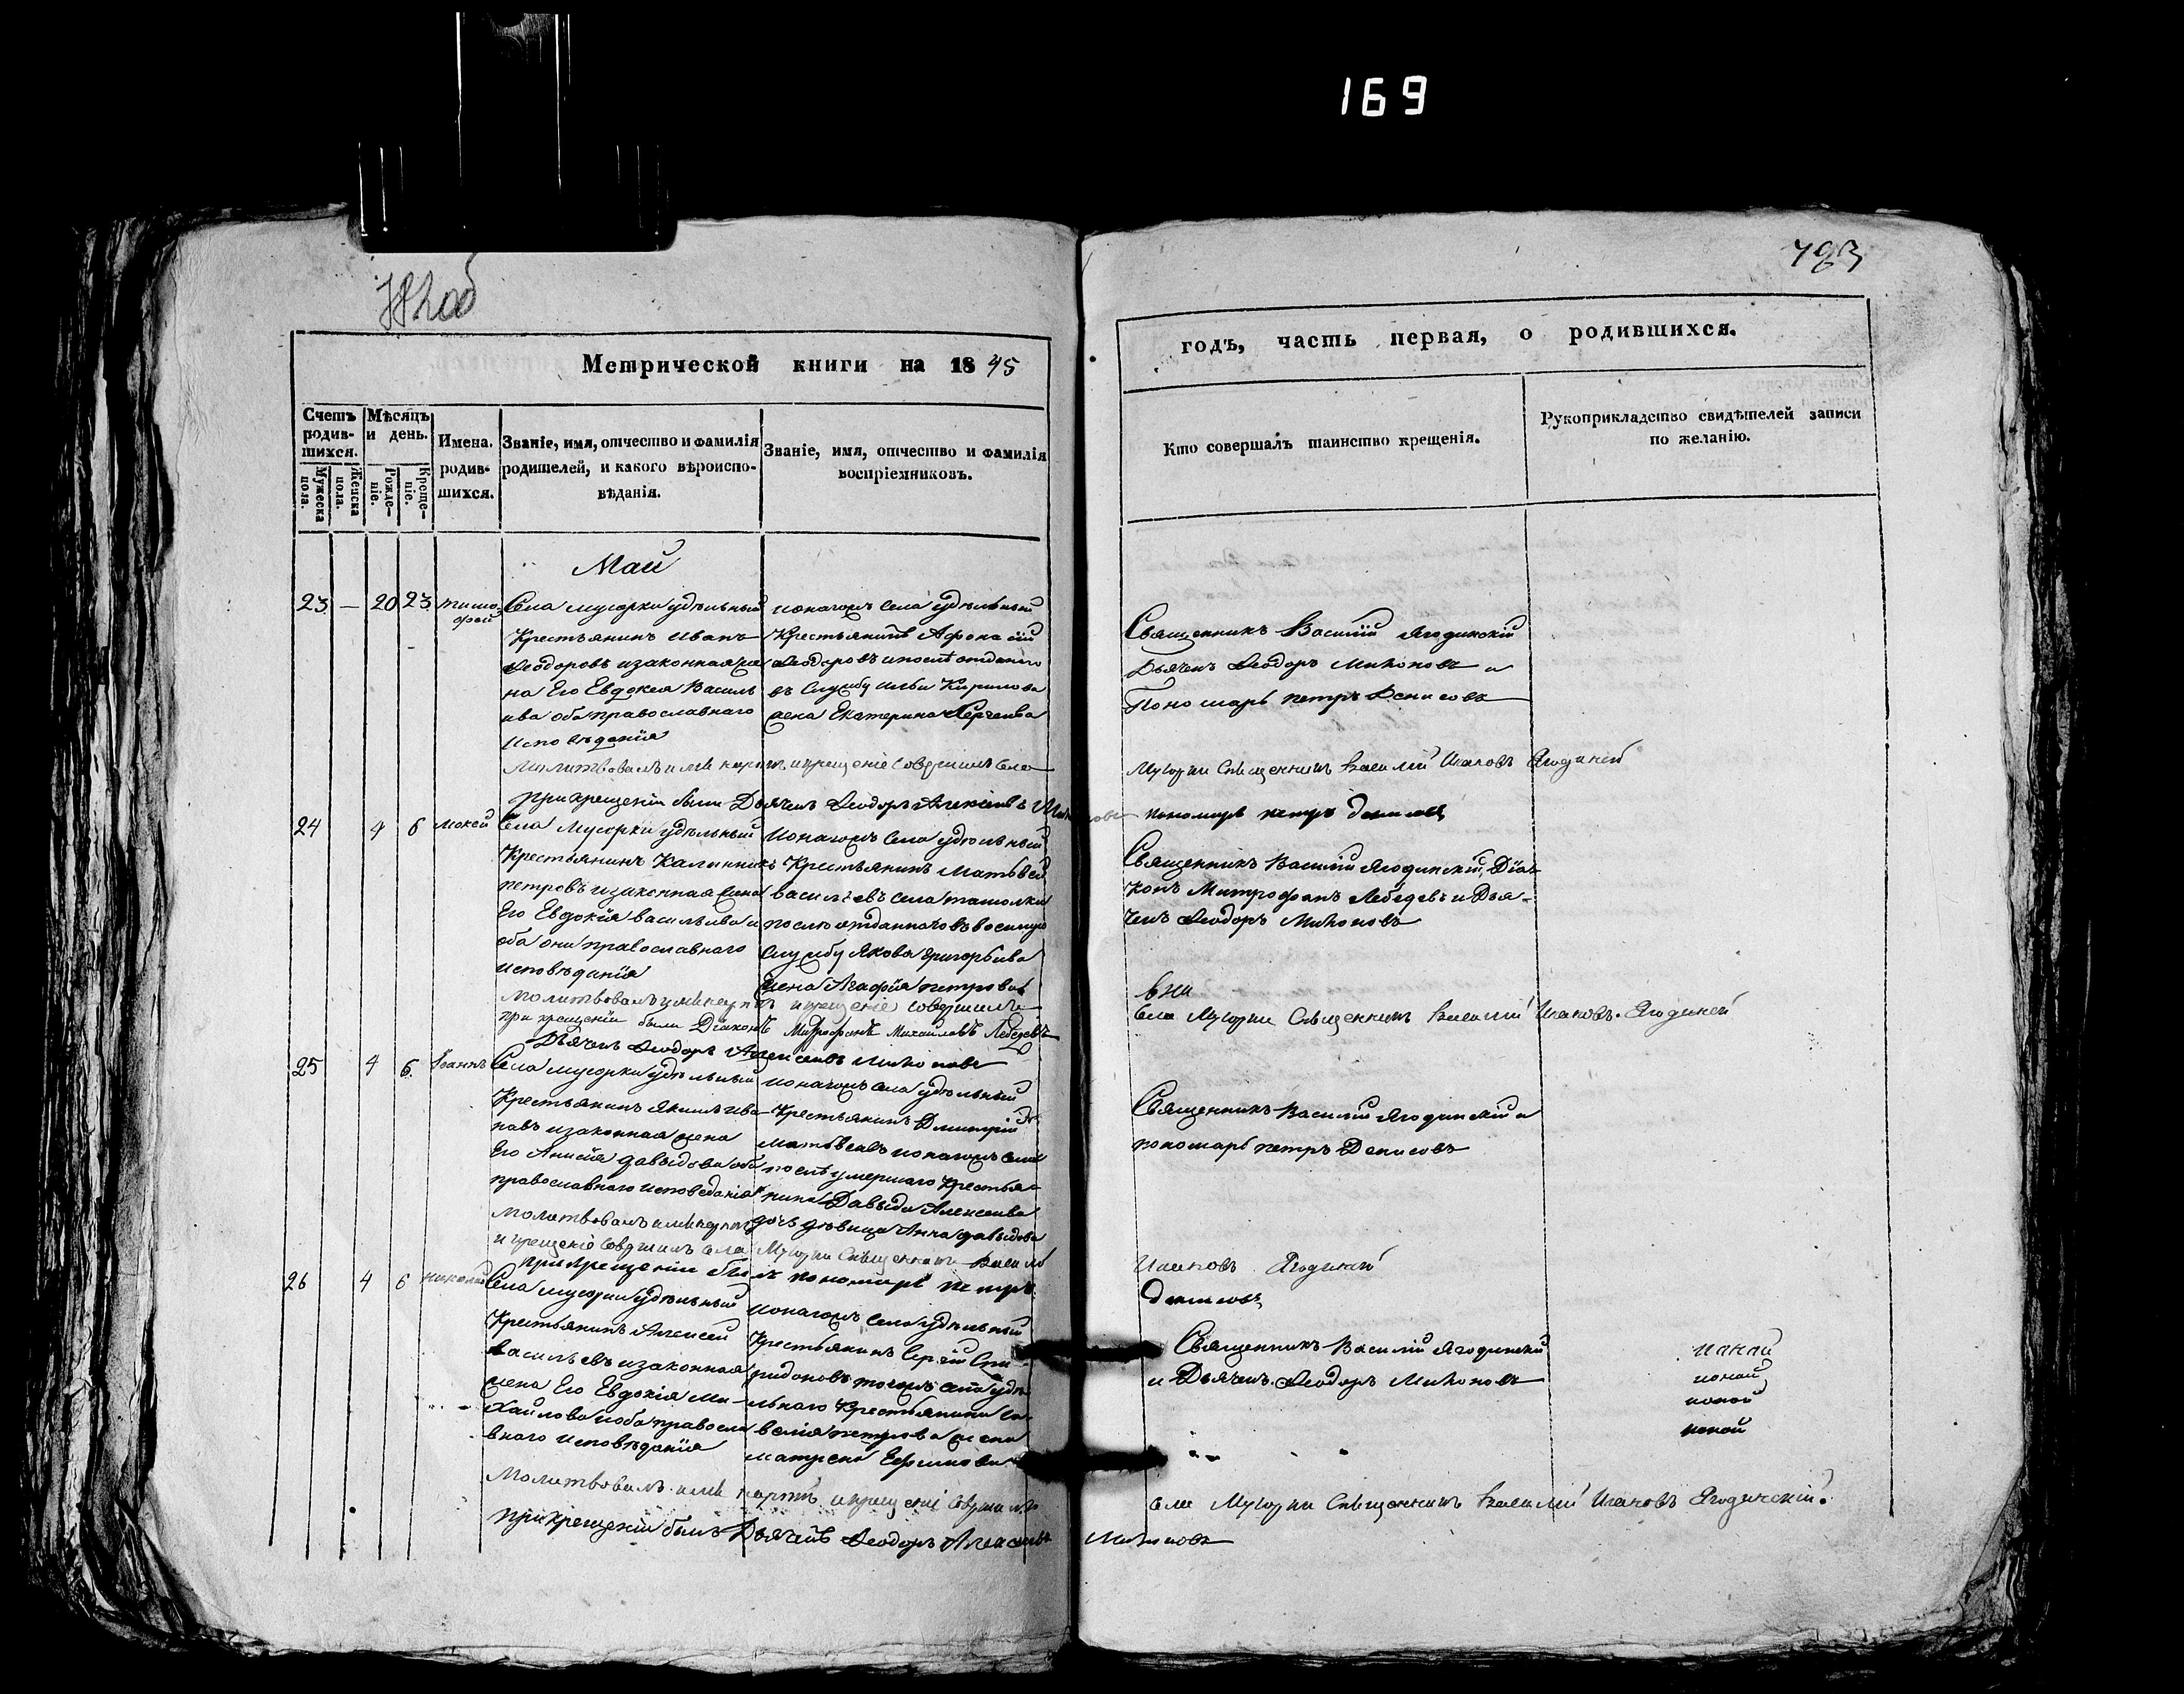 169
782об
793
Метрической книги на 1845
годъ, часть первая, о родившихся.
Счетъ родив-шихся.
Мужеска пола.
Женска пола.
Мѣсяцъ и день.
Рожде-ніе.
Креще-ніе.
Имена родив-шихся.
Званіе, имя, отчество и фамилія
родителей, и какого вѣроиспо-
вѣданія.
Званіе, имя, отчество и фамилія
воспріемниковъ.
Кто совершалъ таинство крещенія.
Рукоприкладство свидѣтелей записи
по желанію.
Май
23 — 20 23 Тимо-
фей
Села мусорки удѣльный
Крестьянинъ Иванъ
Ѳеодоровъ и законная же
на Его Евдокея Василь
ива оба православнаго
Исповѣданія
тогожъ села удѣльный
Крестьянинъ Афонасій
Ѳеодоровъ и послѣ отданнаго
въ службу Ильи Кирилова
жена Екатерина Сергеива
Священникъ Василій Ягодинскій
Дьячекъ Ѳеодоръ Миконовъ и
Пономарь петръ Денисовъ
Молитвовалъ имя нарекъ и крещеніе совершилъ села
Мусорки Священникъ Василій Ивановъ Ягодинскій
При крещеніи были Дьячекъ Ѳеодоръ Алексеивъ Миконовъ
пономарь петръ денисовъ
24 4 6 Мокей
Села Мусорки удѣльный
Крестьянинъ Калинникъ
петровъ и законная жена
Его Евдокія васильива и
оба они православнаго
исповѣданія
тогожъ села удѣльный
Крестьянинъ Матвей
васильевъ села ташолки
послѣ отданнаго въ военную
службу Якова Григорьива
жена Агафія петрова
Священникъ Василій Ягодинскій, Діа-
конъ Митрофанъ Лебедевъ и Дья-
чекъ Ѳеодоръ Миконовъ
Молитвовалъ имя нарекъ и крещеніе совершилъ
села Мусорки Священникъ Василій Ивановъ Ягодинскій
при крещеніи были Діаконъ Митрофанъ Михайловъ Лебедевъ
Дьячекъ Ѳеодоръ Алексеивъ Миконовъ
25 4 6 Іоаннъ
Села мусорки удѣльный
Крестьянинъ Якимъ ива-
новъ и законная жена
Его Анисія давыдова оба
православнаго исповеданія
тогожъ села удѣльный
Крестьянинъ Димитрій
матвѣевъ и тогожъ села
послѣ умершаго Крестья-
нина Давыда Алексеива
дочь дѣвица Анна давыдова
Священникъ Василій Ягодинскій и
пономарь петръ Денисовъ
Молитвовалъ имя нарекъ
и крещеніе совршилъ села Мусорки Священникъ Василій
Ивановъ Ягодинскій
При крещеніи былъ пономарь петръ
денисовъ
26 4 6 николай
Села мусорки удѣльный
Крестьянинъ Алексей
васильевъ и законная
жена Его Евдокія Ми-
хайлова и оба православ
внаго исповѣданія
тогожъ села удѣльный
Крестьянинъ Сергій Спи-
ридоновъ тогожъ села удѣ-
льнаго Крестьянина
петрова жена
матрена Ефимова
Священникъ Василій Ягодинскій
и Дьячекъ Ѳеодоръ Миконовъ
Молитвовалъ имя нарекъ и крещеніе совершилъ
села Мусорки Священникъ Василій Ивановъ Ягодинскій.
При крещеніи былъ Дьячекъ Ѳеодоръ Алексеивъ
Миконовъ